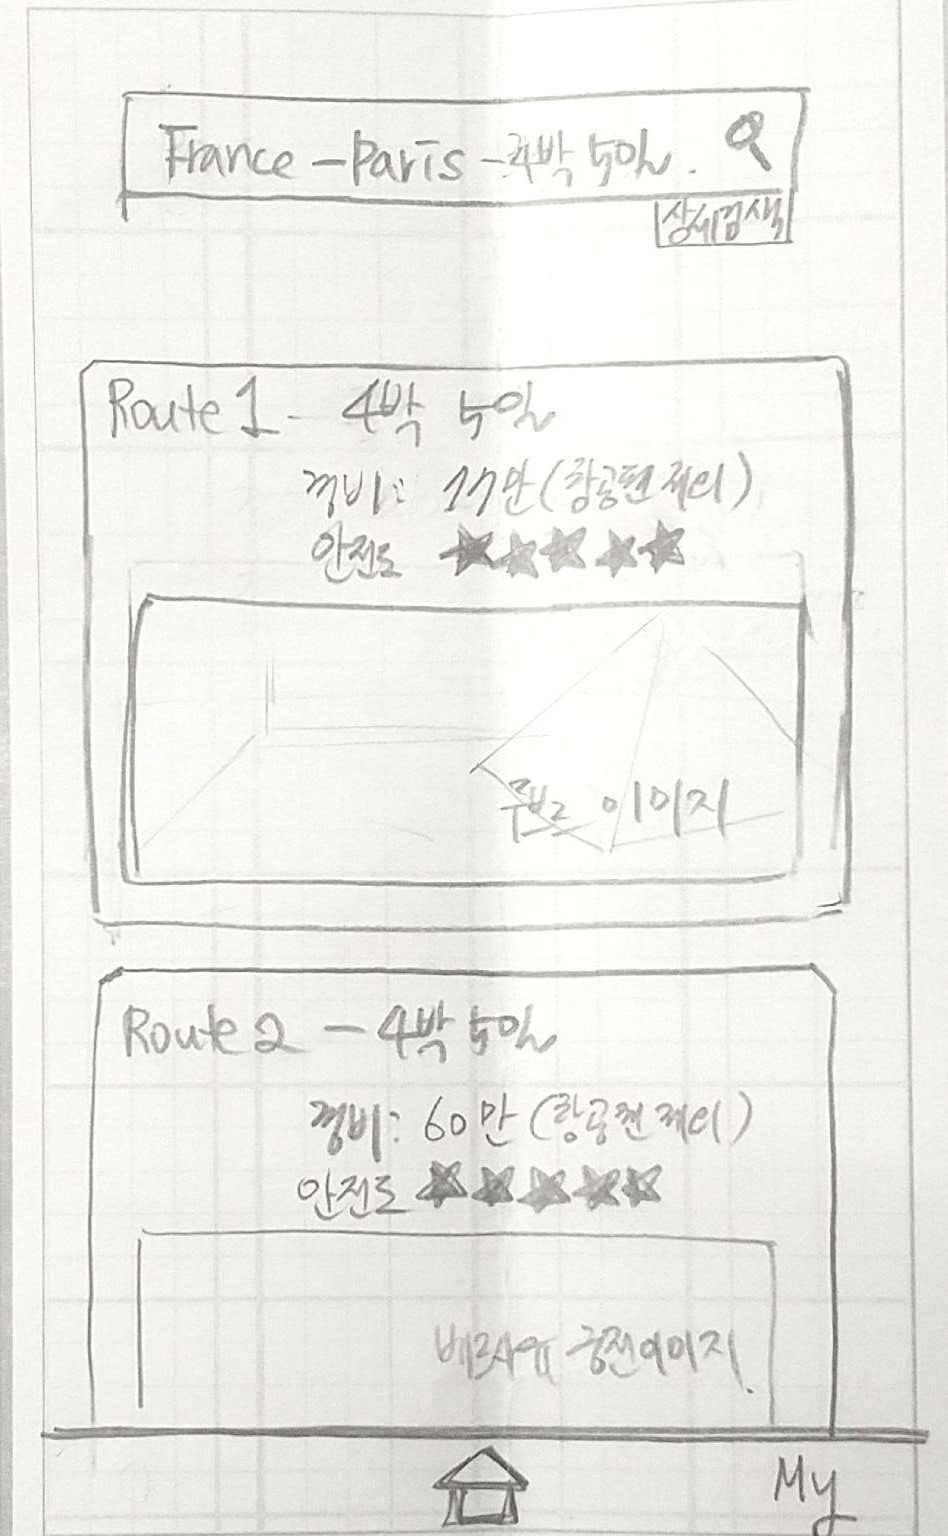 France - Paris - 4박 5일.
상세검색
Route 1 - 4박 5일
경비: 77만 (항공편 제외)
안전도 ★★★★★
루브르 이미지
Route 2 - 4박 5일
경비: 60만 (항공편 제외)
안전도 ★★★★★
베르사유 궁전이미지.
My